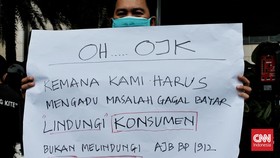 OH..... OJK
KEMANA KAMI HARUS
MENGADU MASALAH GAGAL BAYAR
LINDUNGI KONSUMEN
BUKAN MELINDUNGI AJB BP 1912
CNN
Indonesia